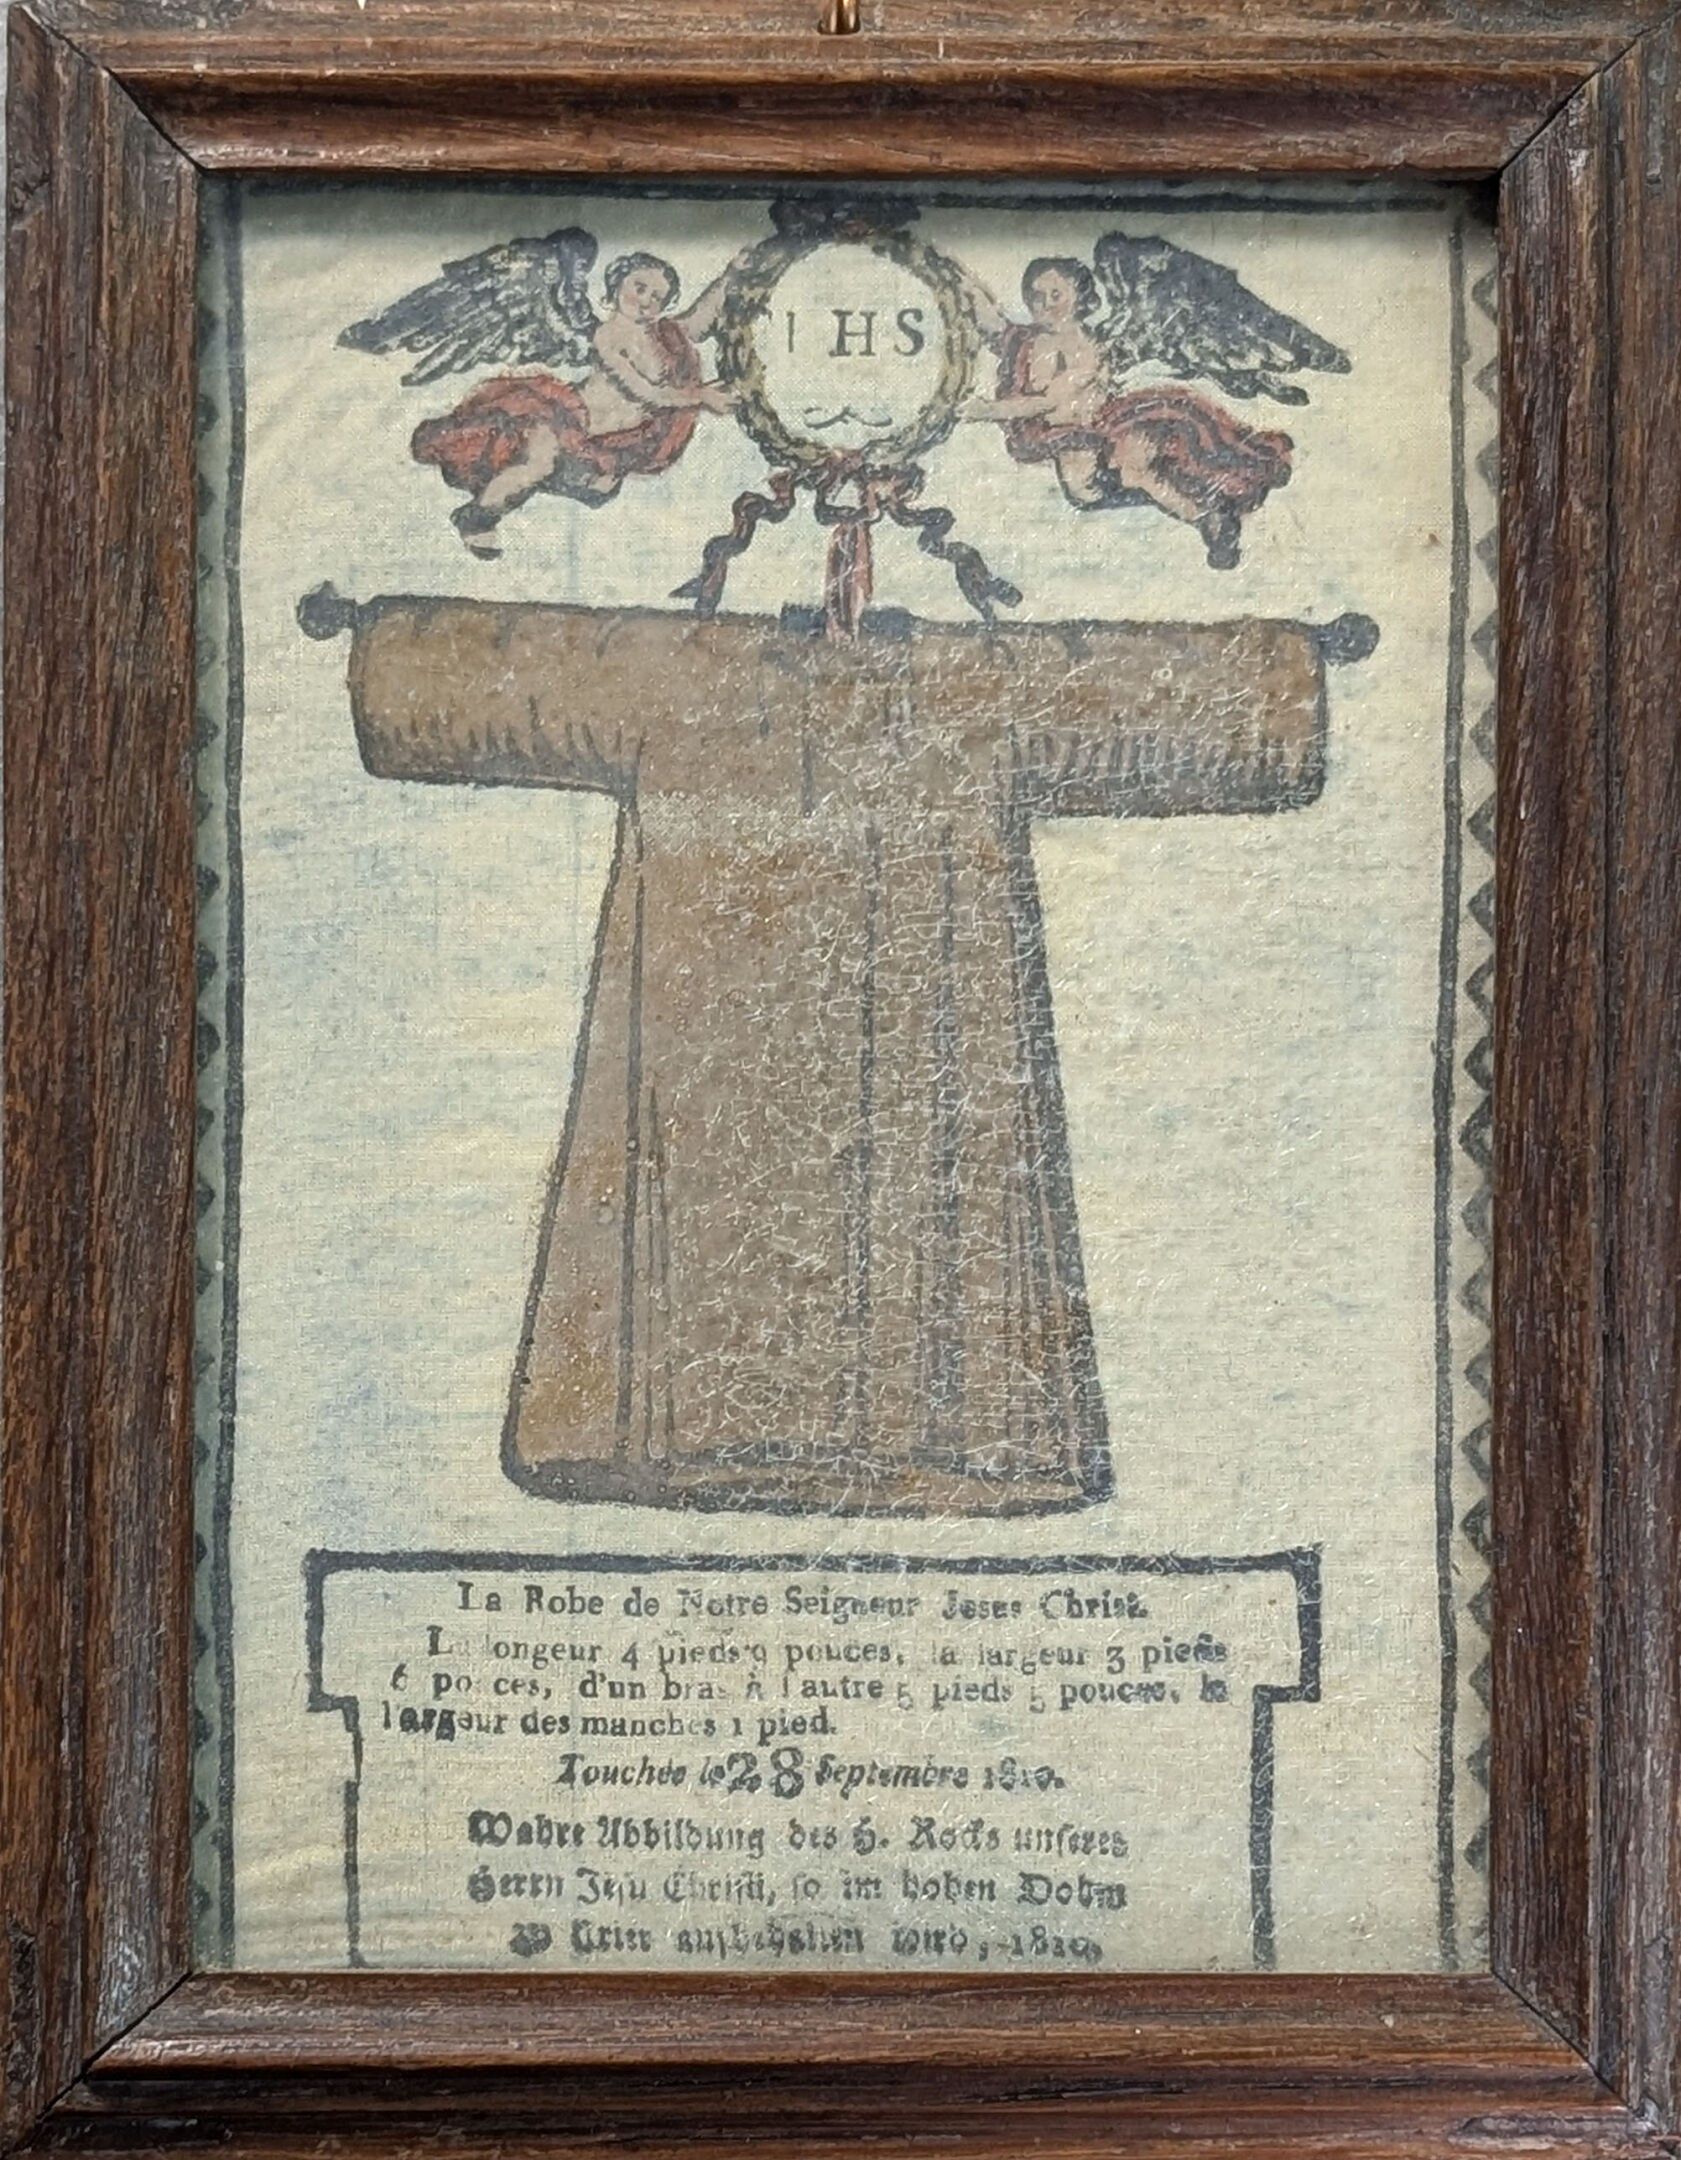 IHS
La Robe de Notre Seigneur Jesus Christ.
La longeur 4 pieds 9 pouces, la largeur 3 pieds
6 pouces, d'un bras à l'autre 5 pieds 5 pouces, la
largeur des manches 1 pied.
Touchée le 28 Septembre 1810.
Wahre Abbildung des H. Rocks unseres
Herrn Jesu Christi, so im hohen Dohm
zu Trier aufbehalten wird, 1810.